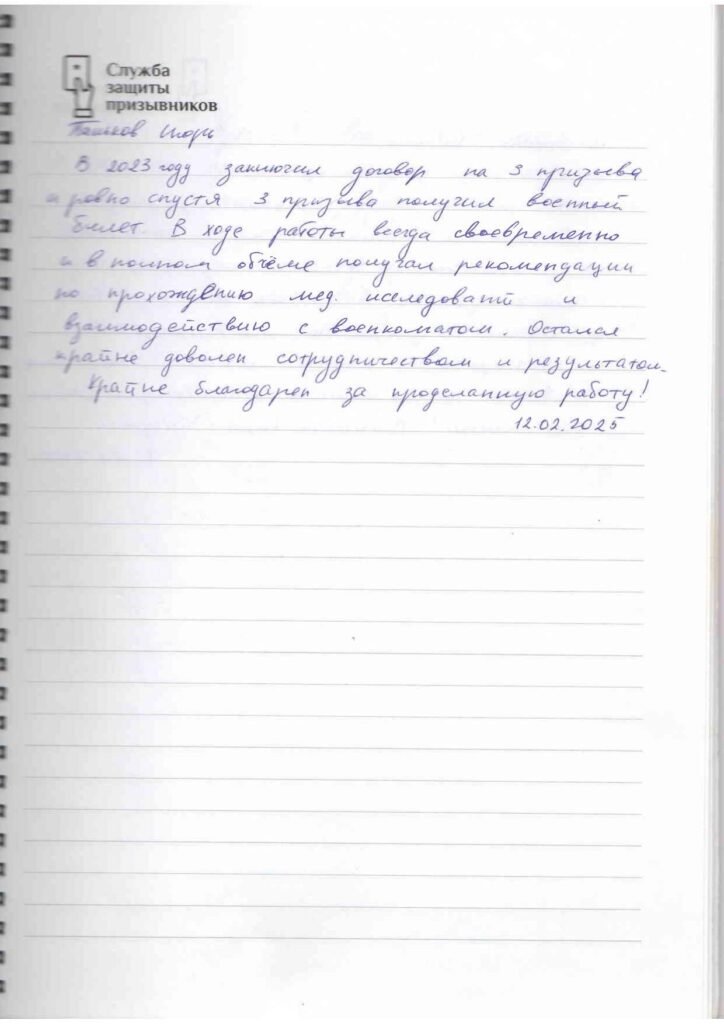 Служба
защиты
призывников
Пашков Игорь
В 2023 году заключил договор на 3 призыва
и ровно спустя 3 призыва получил военный
билет. В ходе работы всегда своевременно
и в полном объёме получал рекомендации
по прохождению мед. исследований и
взаимодействию с военкоматом. Остался
крайне доволен сотрудничеством и результатом.
Крайне благодарен за проделанную работу!
12.02.2025